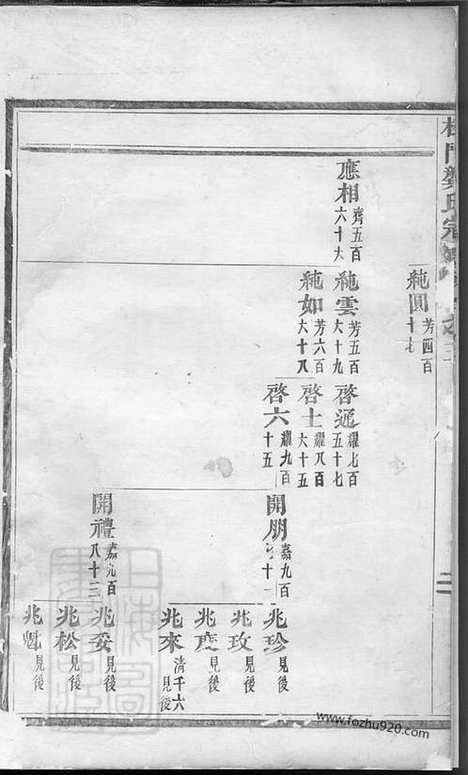 門龔氏宗
純圓 芳四百十七
應相 齊五百六十六
純雲 芳五百六十九
純如 芳六百六十八
啓通 耀七百五十七
啓士 耀八百六十五
啓六 耀九百十五
開朋 嘉九百十一
開禮 嘉九百八十三
兆珍 見後
兆玫 見後
兆 見後
兆來 清千六 見後
兆妥 見後
兆松 見後
兆魁 見後
www.fozhu920.com